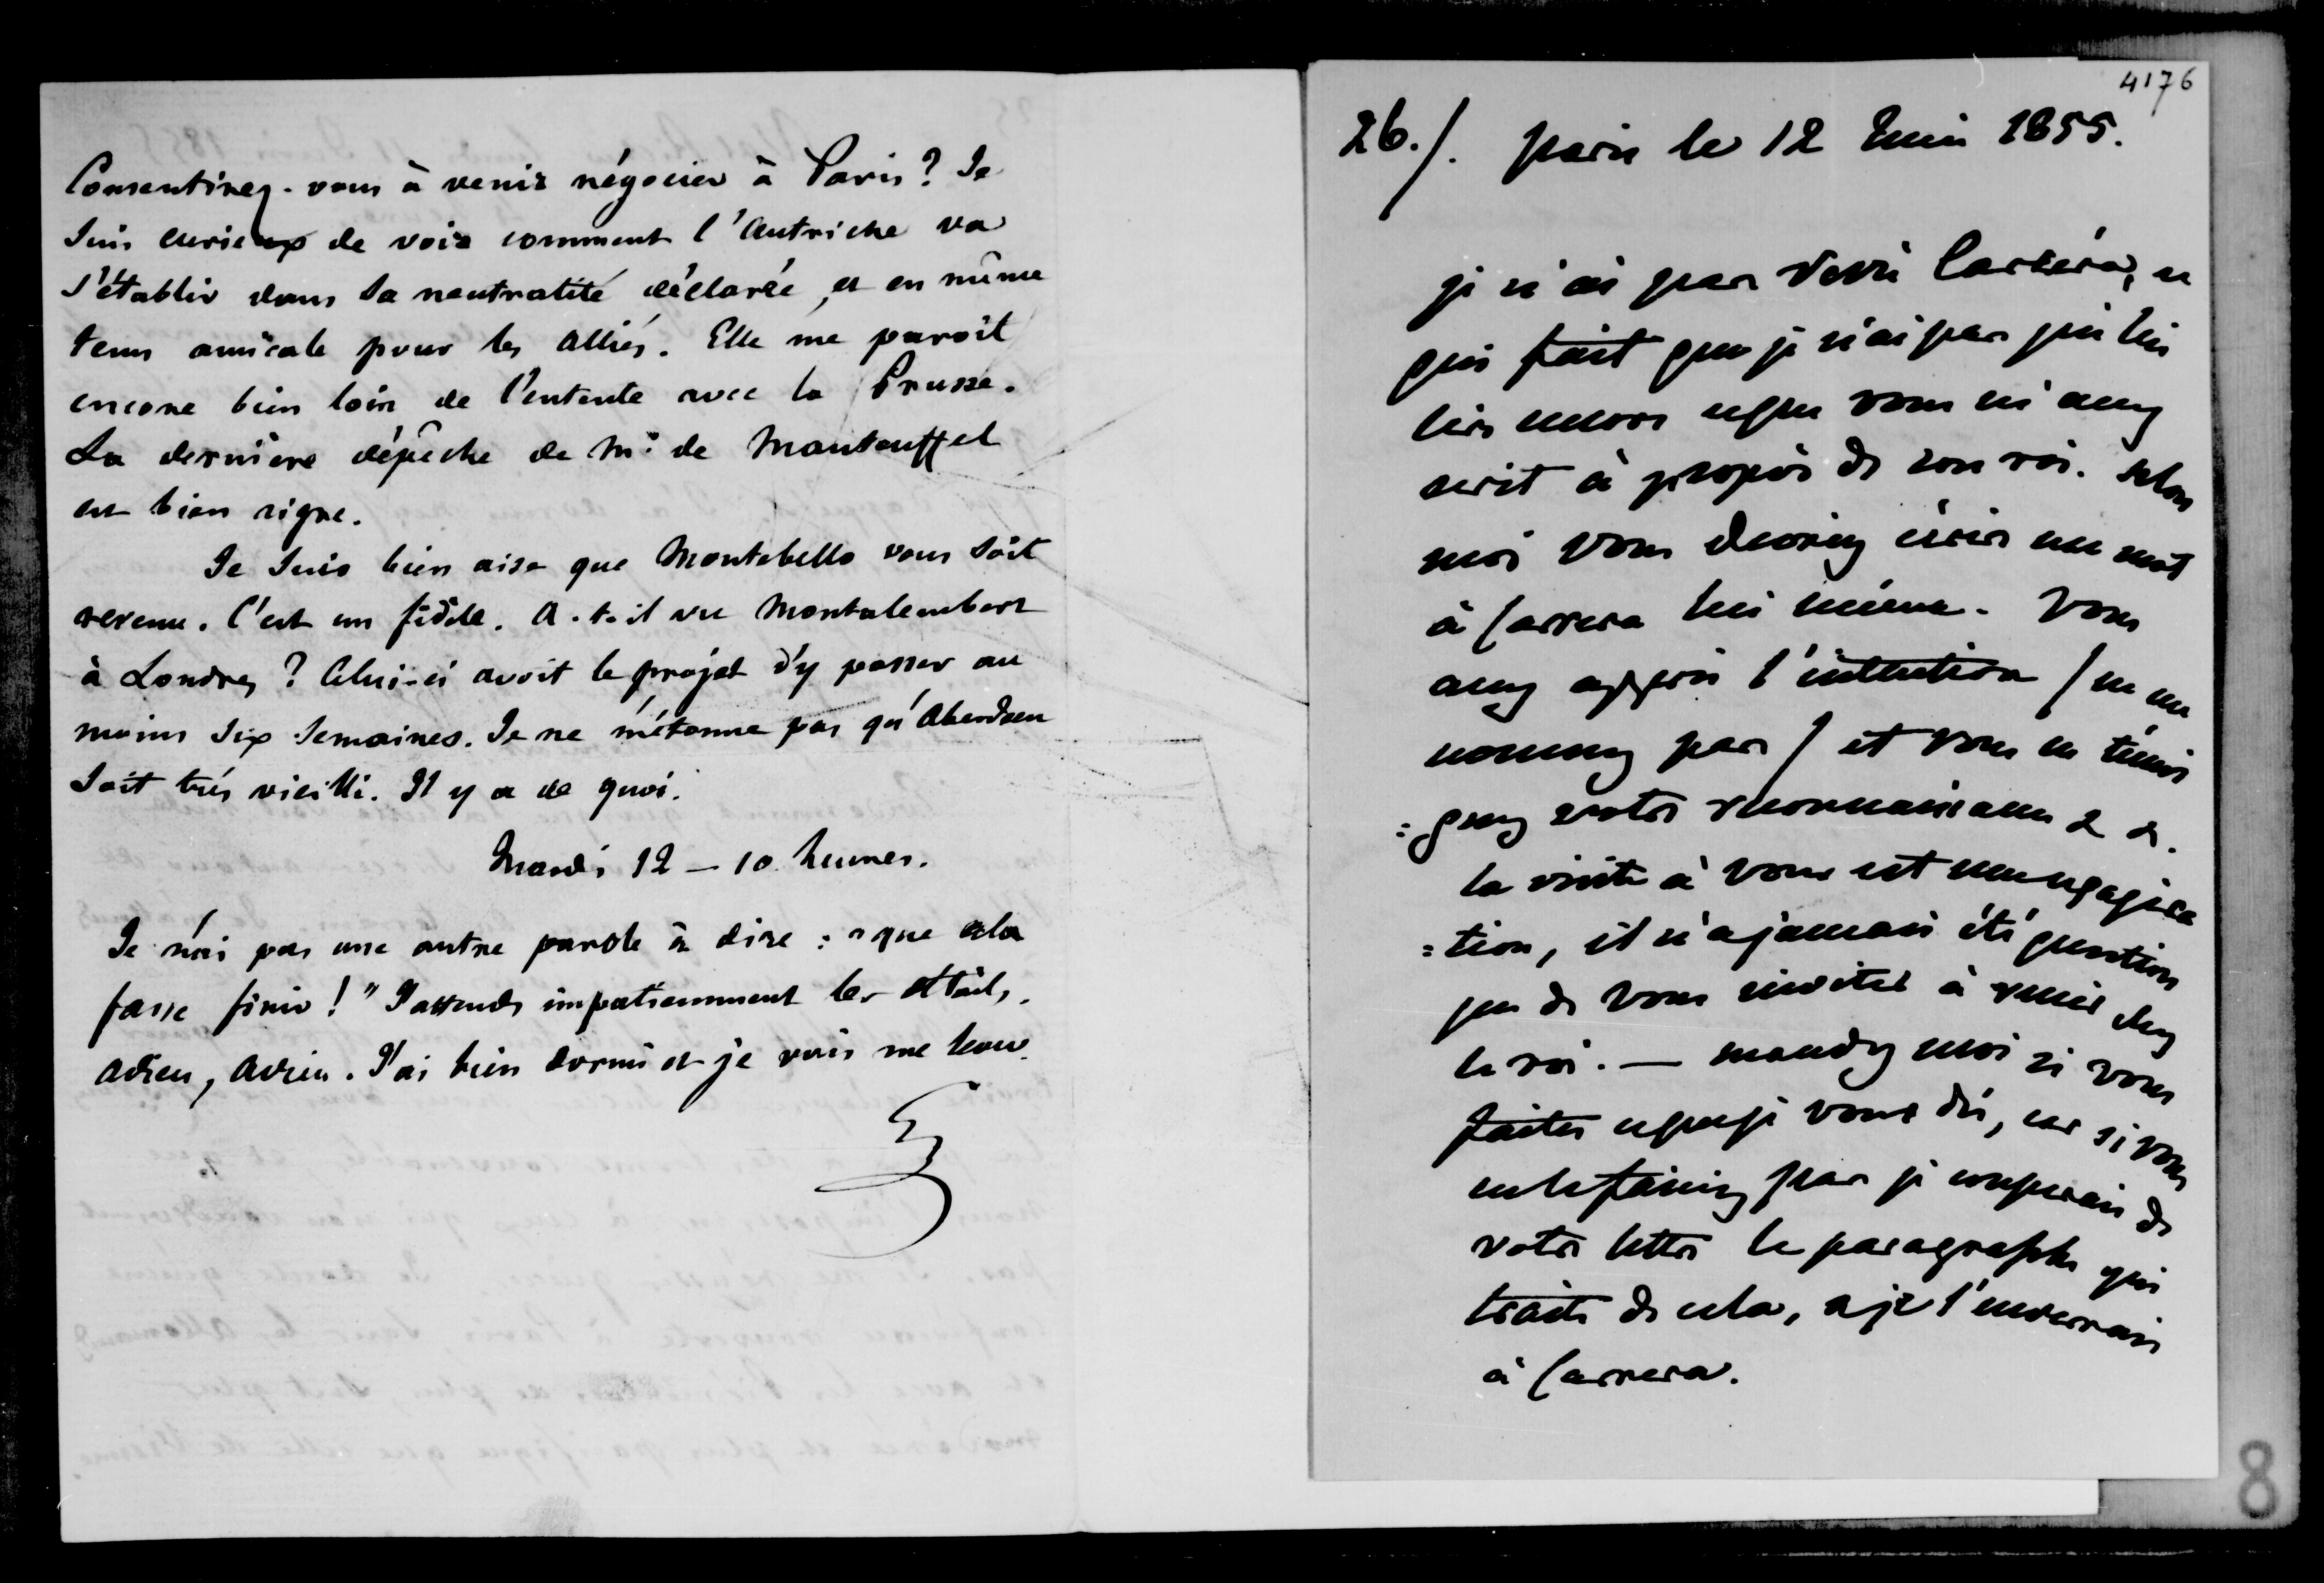 Consentirez-vous à venir négocier à Paris ? Je
suis curieux de voir comment l'Autriche va
s'établir dans sa neutralité déclarée, et en même
tems amicale pour les alliés. Elle me paroît
encore bien loin de l'entente avec la Prusse.
La dernière dépêche de Mr de Manteuffel
est bien aigre.
Je suis bien aise que Montebello vous soit
revenu. C'est un fidèle. A-t-il vu Montalembert
à Londres ? Celui-ci avoit le projet d'y passer au
moins six semaines. Je ne m'étonne pas qu'Aberdeen
soit très vieilli. Il y a de quoi.
Mardi 12 - 10 heures.
Je n'ai pas une autre parole à dire : "que cela
fasse finir !" J'attends impatiemment les détails.
Adieu, Adieu. J'ai bien dormi et je vais me lever.
G
4176
26./. paris le 12 Juin 1855.
je n'ai pas revu Carrera, ce
qui fait que je n'ai pas pu lui
lire encore ce que vous m'avez
écrit à propos de son roi. Selon
moi vous devriez écrire un mot
à Carrera lui même. Vous
avez appris l'intention / ne me
nommez pas / et vous en témoi
=gnez votre reconnaissance & &.
la visite à vous est une exagéra
=tion, il n'a jamais été question
que de vous inviter à venir chez
le roi. — mandez moi si vous
faites ce que je vous dis, car si vous
ne le faisiez pas je couperais de
votre lettre le paragraphe qui
traite de cela, & je l'enverrais
à Carrera.
8